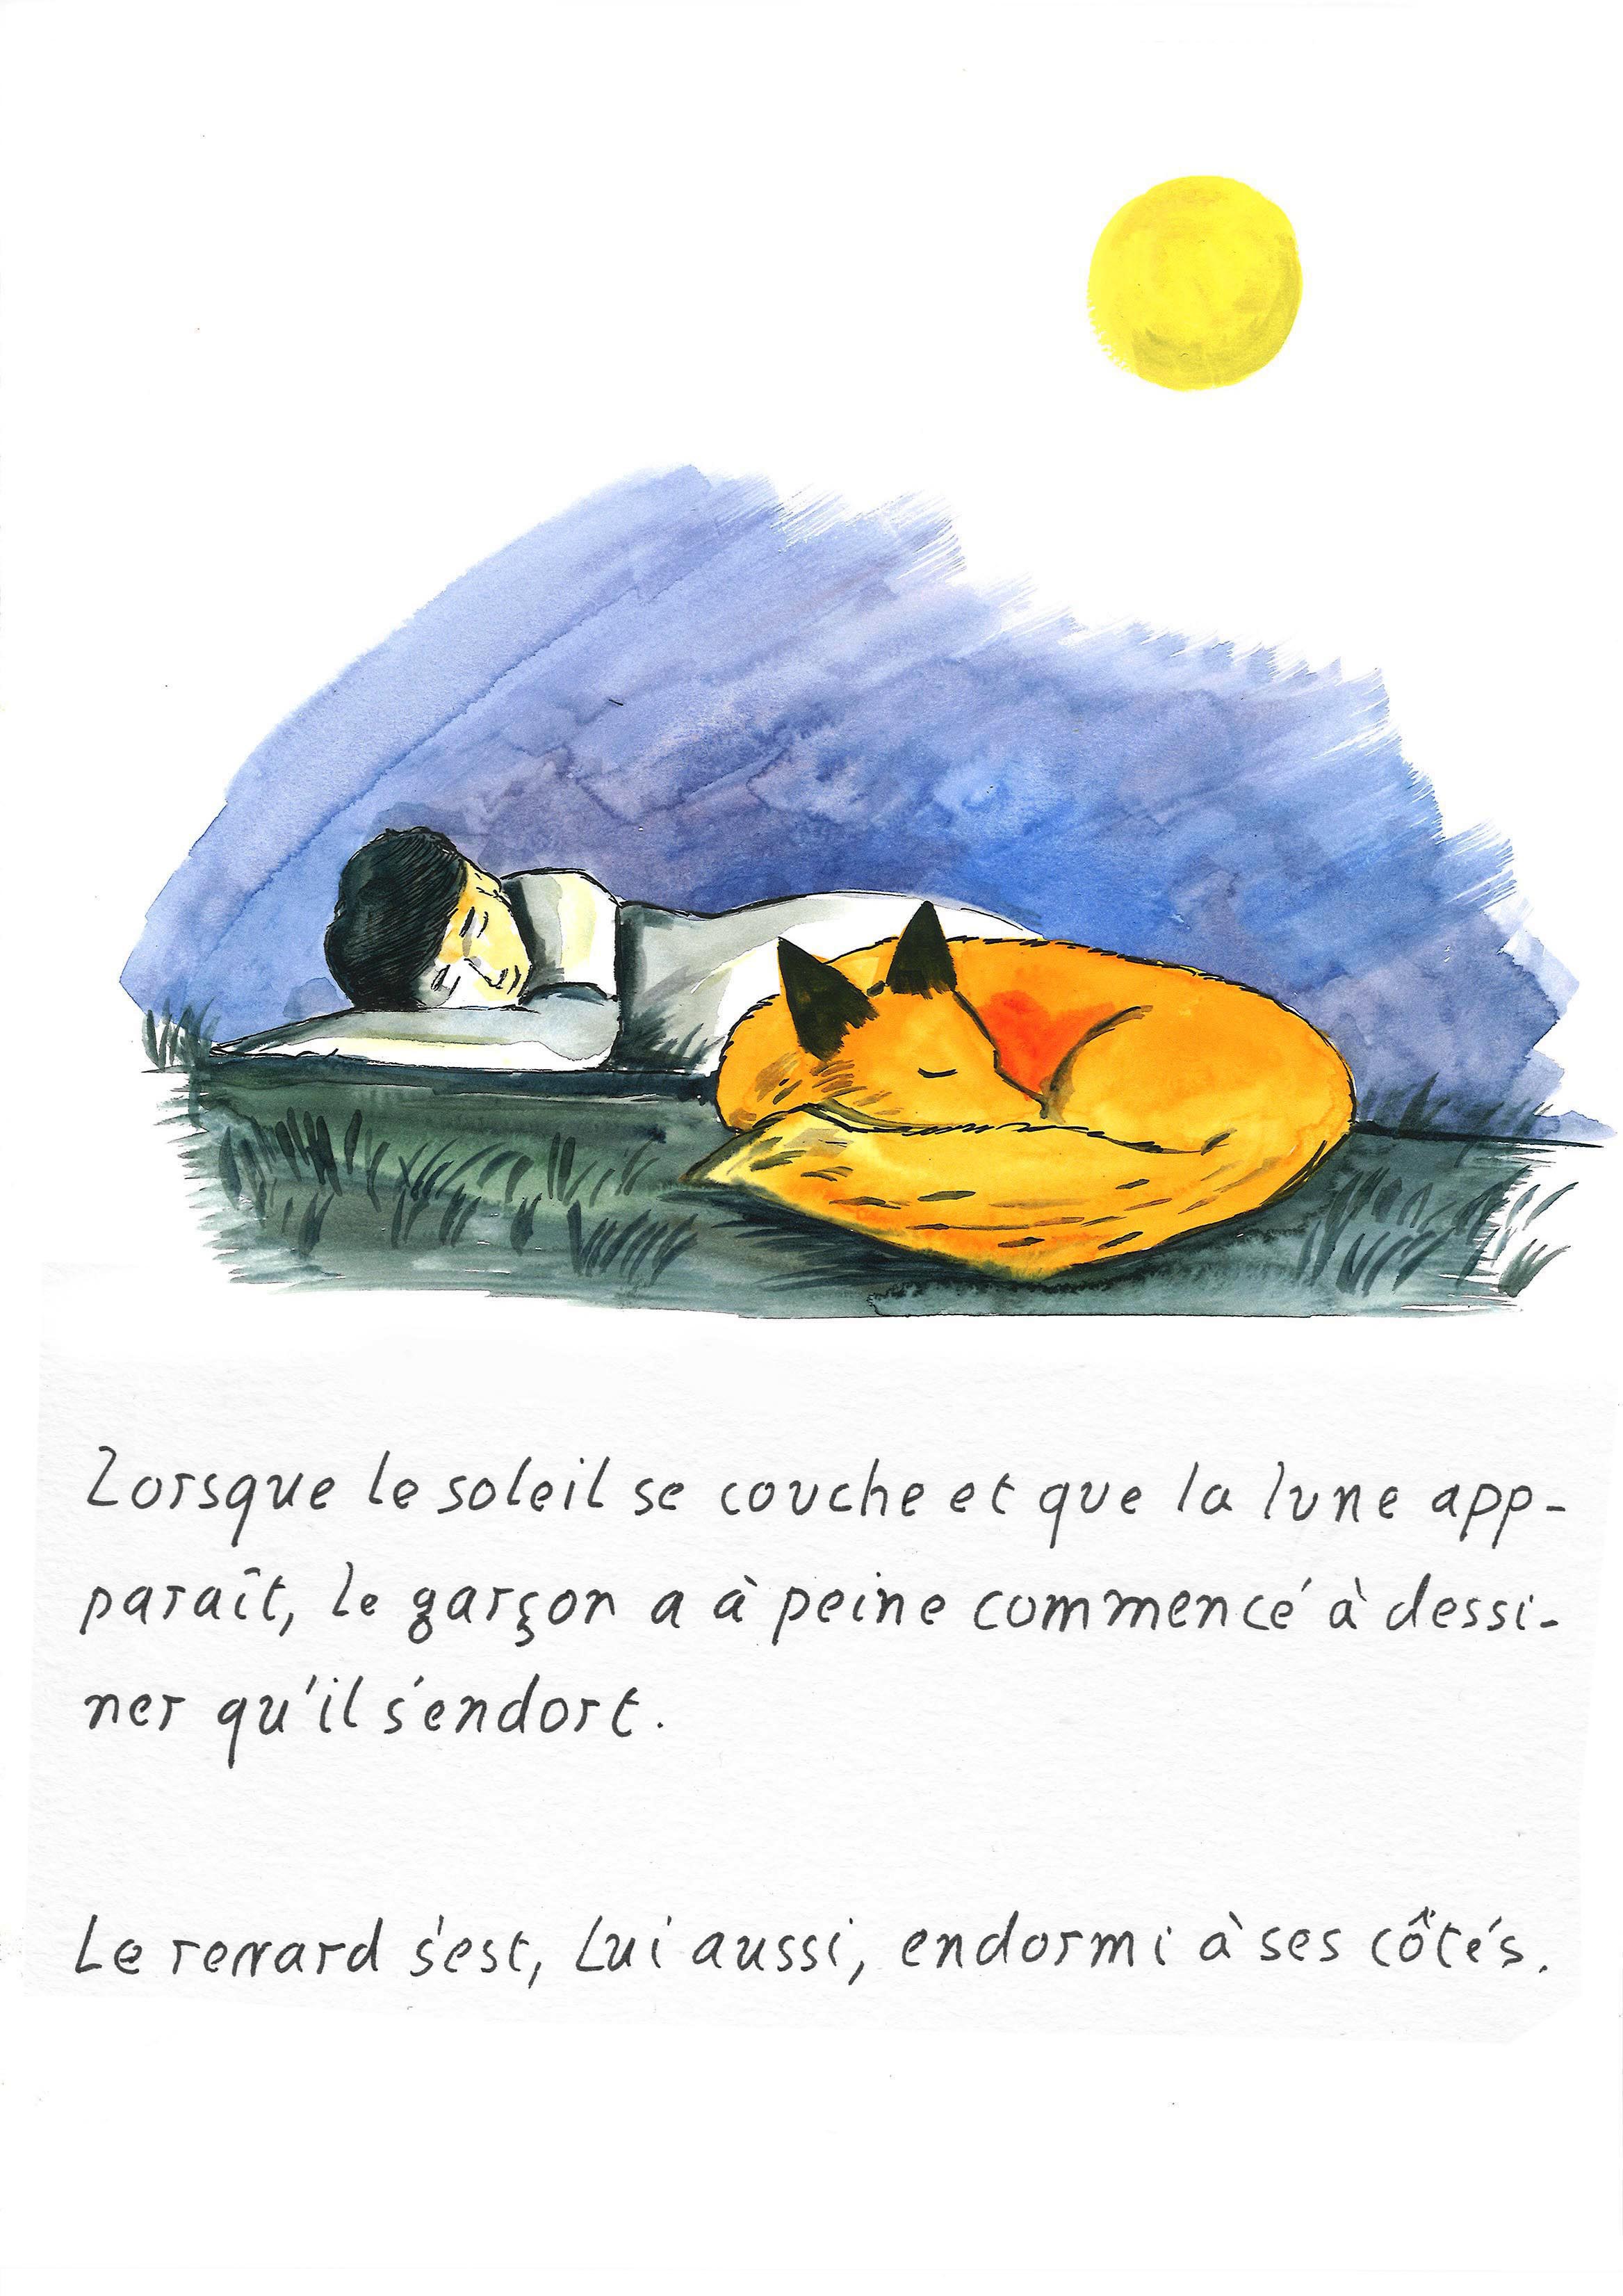 Lorsque le soleil se couche et que la lune app-
paraît, le garçon a à peine commencé à dessi-
ner qu'il s'endort.
Le renard s'est, Lui aussi, endormi à ses côtés.